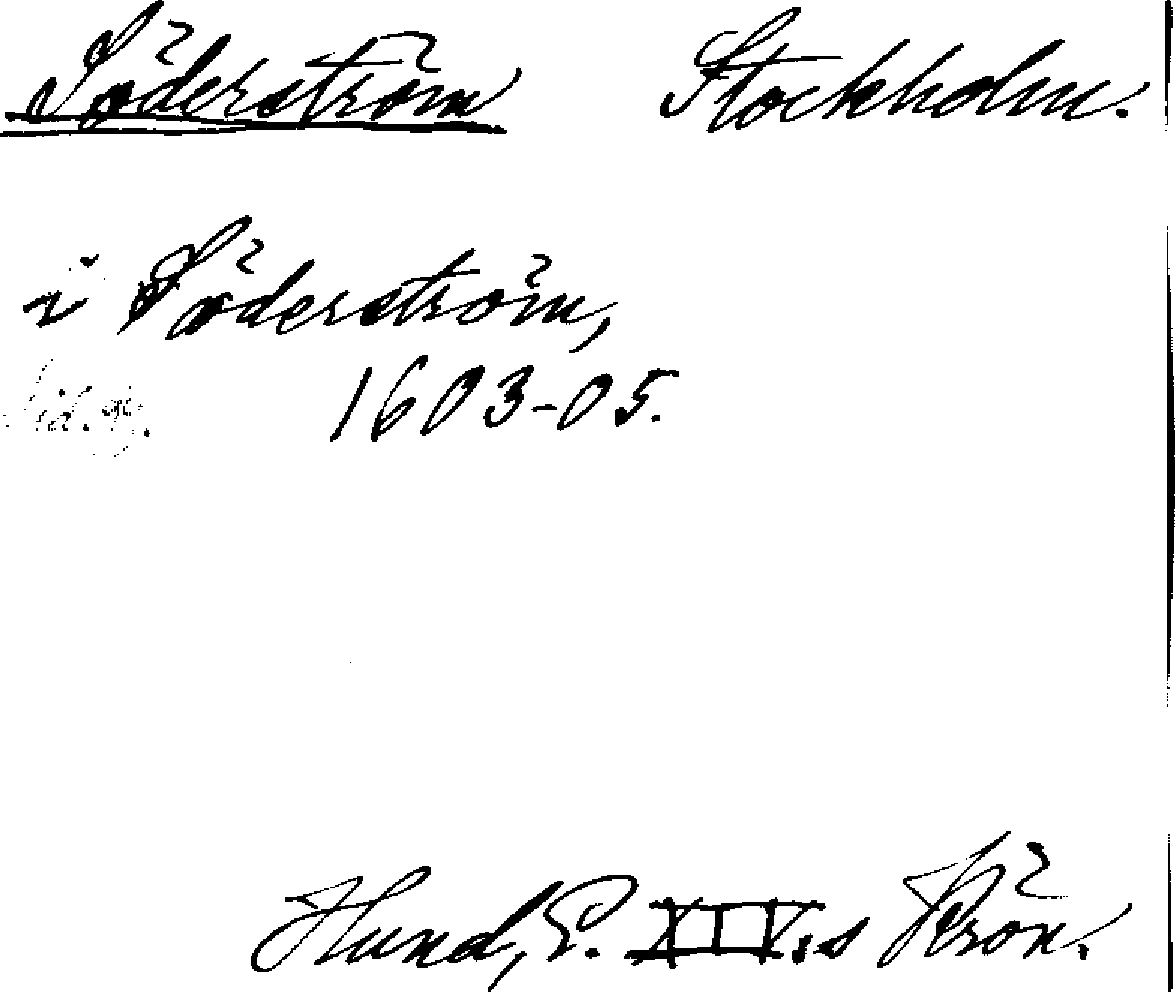 Söderström Stockholm.
i Söderström,
1603-05.
Hund, E. XIV:s Krön.